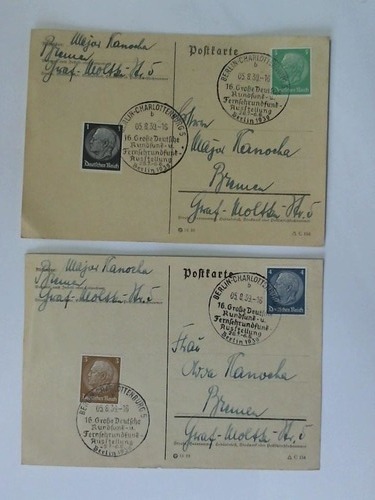 Major Kanocha
Bremen
Graf-Moltke-Str. 5
Postkarte
5
Deutsches Reich
BERLIN-CHARLOTTENBURG 5
b
05.8.39.-16
16. Große Deutsche
Rundfunk- u.
Fernsehrundfunk-
Ausstellung
28.7.-6.8.
Berlin 1939
1
Deutsches Reich
BERLIN-CHARLOTTENBURG 5
b
05.8.39.-16
16. Große Deutsche
Rundfunk- u.
Fernsehrundfunk-
Ausstellung
28.7.-6.8.
Berlin 1939
Herrn
Major Kanocha
Bremen
Graf-Moltke-Str. 5
Major Kanocha
Bremen
Graf-Moltke-Str. 5
Postkarte
4
Deutsches Reich
BERLIN-CHARLOTTENBURG 5
b
05.8.39.-16
16. Große Deutsche
Rundfunk- u.
Fernsehrundfunk-
Ausstellung
28.7.-6.8.
Berlin 1939
3
Deutsches Reich
BERLIN-CHARLOTTENBURG 5
05.8.39.-16
16. Große Deutsche
Rundfunk- u.
Fernsehrundfunk-
Ausstellung
28.7.-6.8.
Berlin 1939
Frau
Kanocha
Bremen
Graf-Moltke-Str. 5